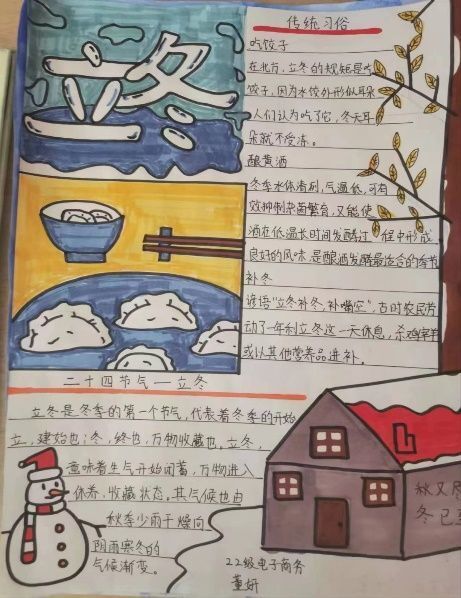 立冬
传统习俗
吃饺子
在北方，立冬的规矩是吃
饺子，因为水饺外形似耳朵
人们认为吃了它，冬天耳
朵就不受冻。
酿黄酒
冬季水体清冽，气温低，可有
效抑制杂菌繁育，又能使
酒在低温长时间发酵过程中形成
良好的风味，是酿酒发酵最适合的季节
补冬
谚语"立冬补冬，补嘴空"，古时农民劳
动了一年利立冬这一天休息，杀鸡宰羊
或以其他营养品进补。
二十四节气一立冬
立冬是冬季的第一个节气，代表着冬季的开始
立，建始也；冬，终也，万物收藏也。立冬，
意味着生气开始闭蓄，万物进入
休养，收藏状态。其气候也由
秋季少雨干燥向
阴雨寒冬的
气候渐变。
秋又尽
冬已至
22级电子商务
董妍